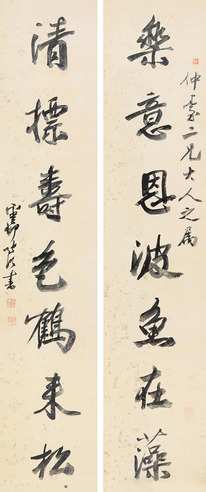 仲二兄大人之属
樂意恩波魚在藻
清標壽色鶴来松
書